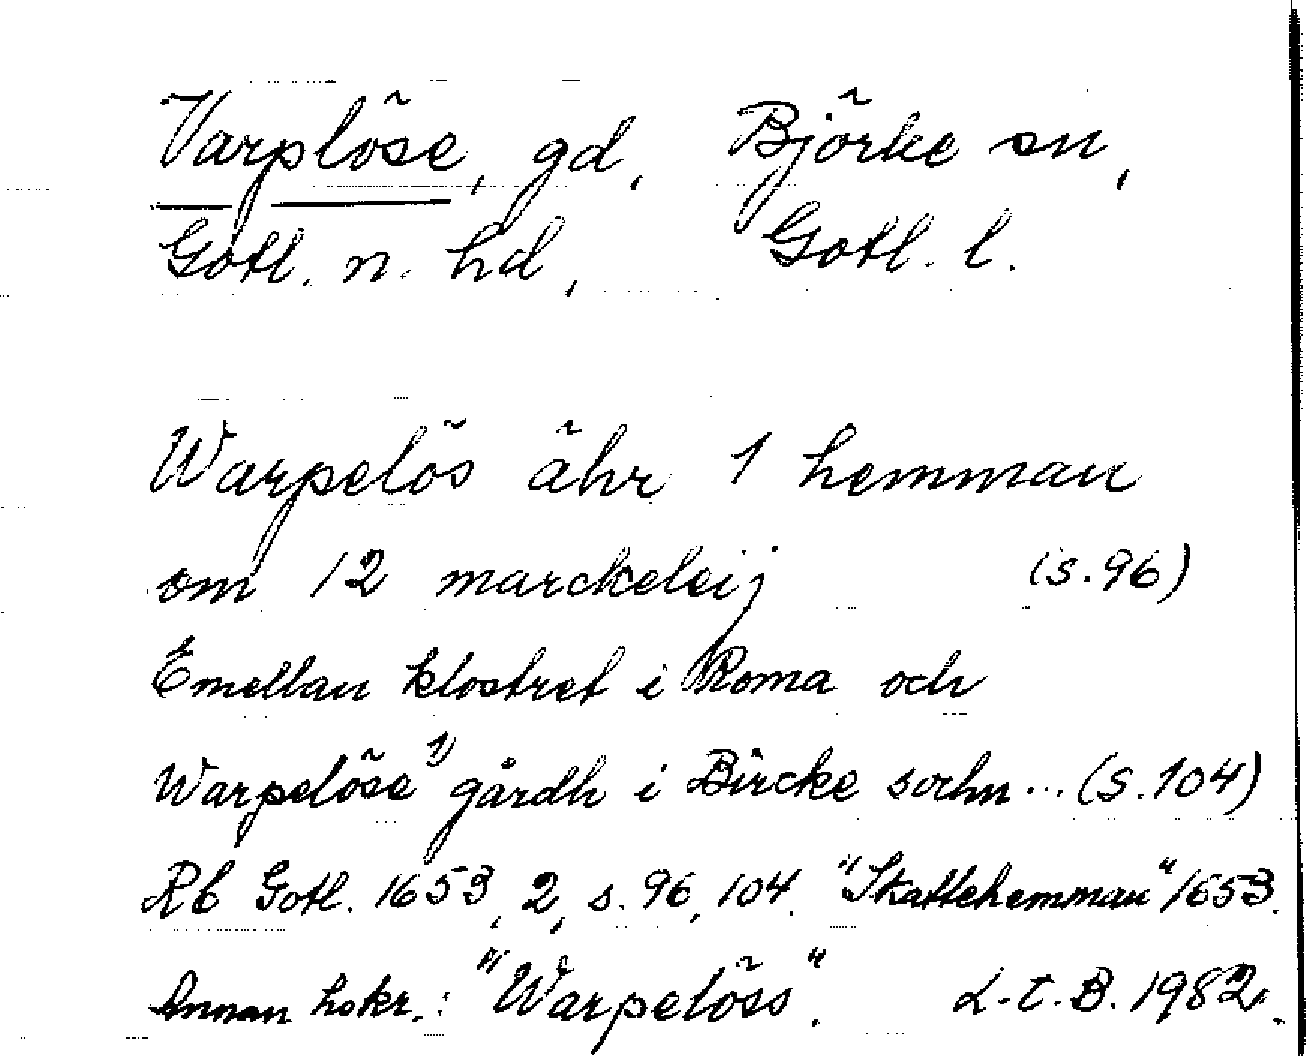 Varplöse, gd, Björke sn,
Gotl. n. hd, Gotl. l.
Warpelös ähr 1 hemman
om 12 marckeleij (s.96)
Emellan klostret i Roma och
Warpelöse 1) gårdh i Bircke sochn... (s.104)
Rb Gotl. 1653, 2, s. 96, 104. "Skattehemman" 1653.
Annan hskr.: "Warpelöss". L.t.B. 1982.